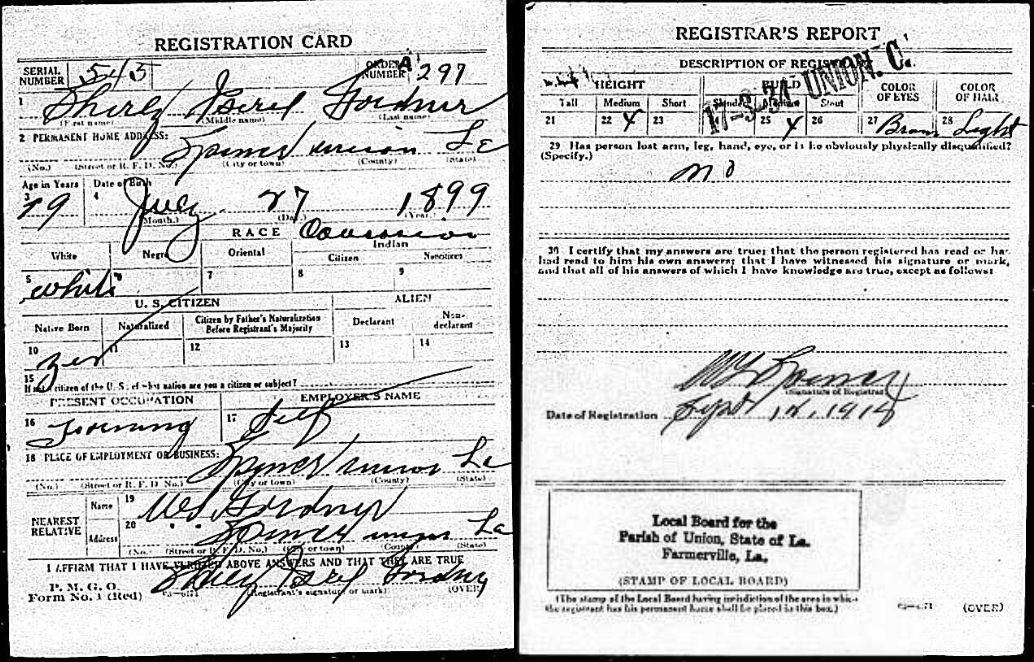 REGISTRATION CARD
SERIAL NUMBER 543 ORDER NUMBER A 297
1 Shirley Iserel Gordner
(First name) (Middle name) (Last name)
2 PERMANENT HOME ADDRESS:
Spencer union La
(No.) (Street or R. F. D. No.) (City or town) (County) (State)
Age in Years Date of Birth
3 19 4 July 27 1899
(Month.) (Day.) (Year.)
RACE Caucasian
White Negro Oriental Indian
Citizen Noncitizen
5 white 7 8 9
U. S. CITIZEN ALIEN
Native Born Naturalized Citizen by Father's Naturalization Before Registrant's Majority Declarant Non-declarant
10 yes 11 12 13 14
15 If not a citizen of the U. S. of what nation are you a citizen or subject?
PRESENT OCCUPATION EMPLOYER'S NAME
16 Farming 17 Self
18 PLACE OF EMPLOYMENT OR BUSINESS:
Spencer union La
(No.) (Street or R. F. D. No.) (City or town) (County) (State)
NEAREST RELATIVE
Name 19 Gordner
Address 20 Spencer union La
(No.) (Street or R. F. D. No.) (City or town) (County) (State)
I AFFIRM THAT I HAVE VERIFIED ABOVE ANSWERS AND THAT THEY ARE TRUE
P. M. G. O.
Form No. 1 (Red) 03-6171 Shirley Iserel Gordner
(Registrant's signature or mark) (OVER)
REGISTRAR'S REPORT
17-3-34 UNION. C.
DESCRIPTION OF REGISTRANT
HEIGHT BUILD COLOR OF EYES COLOR OF HAIR
Tall Medium Short Slender Medium Stout
21 22 X 23 25 X 26 27 Brown 28 Light
29 Has person lost arm, leg, hand, eye, or is he obviously physically disqualified?
(Specify.) no
30 I certify that my answers are true; that the person registered has read or has
had read to him his own answers; that I have witnessed his signature or mark,
and that all of his answers of which I have knowledge are true, except as follows:
Spencer
(Signature of Registrar)
Date of Registration Sept 12, 1918
Local Board for the
Parish of Union, State of La.
Farmerville, La.
(STAMP OF LOCAL BOARD)
(The stamp of the Local Board having jurisdiction of the area in which
the registrant has his permanent home shall be placed in this box.)
03-6171 (OVER)